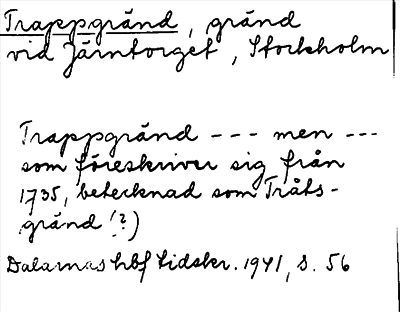 Trappgränd, gränd
vid Järntorget, Stockholm
Trappgränd --- men ---
som föreskriver sig från
1735, betecknad som Tråts-
gränd (?)
Dalarnas hbf tidskr. 1941, s. 56